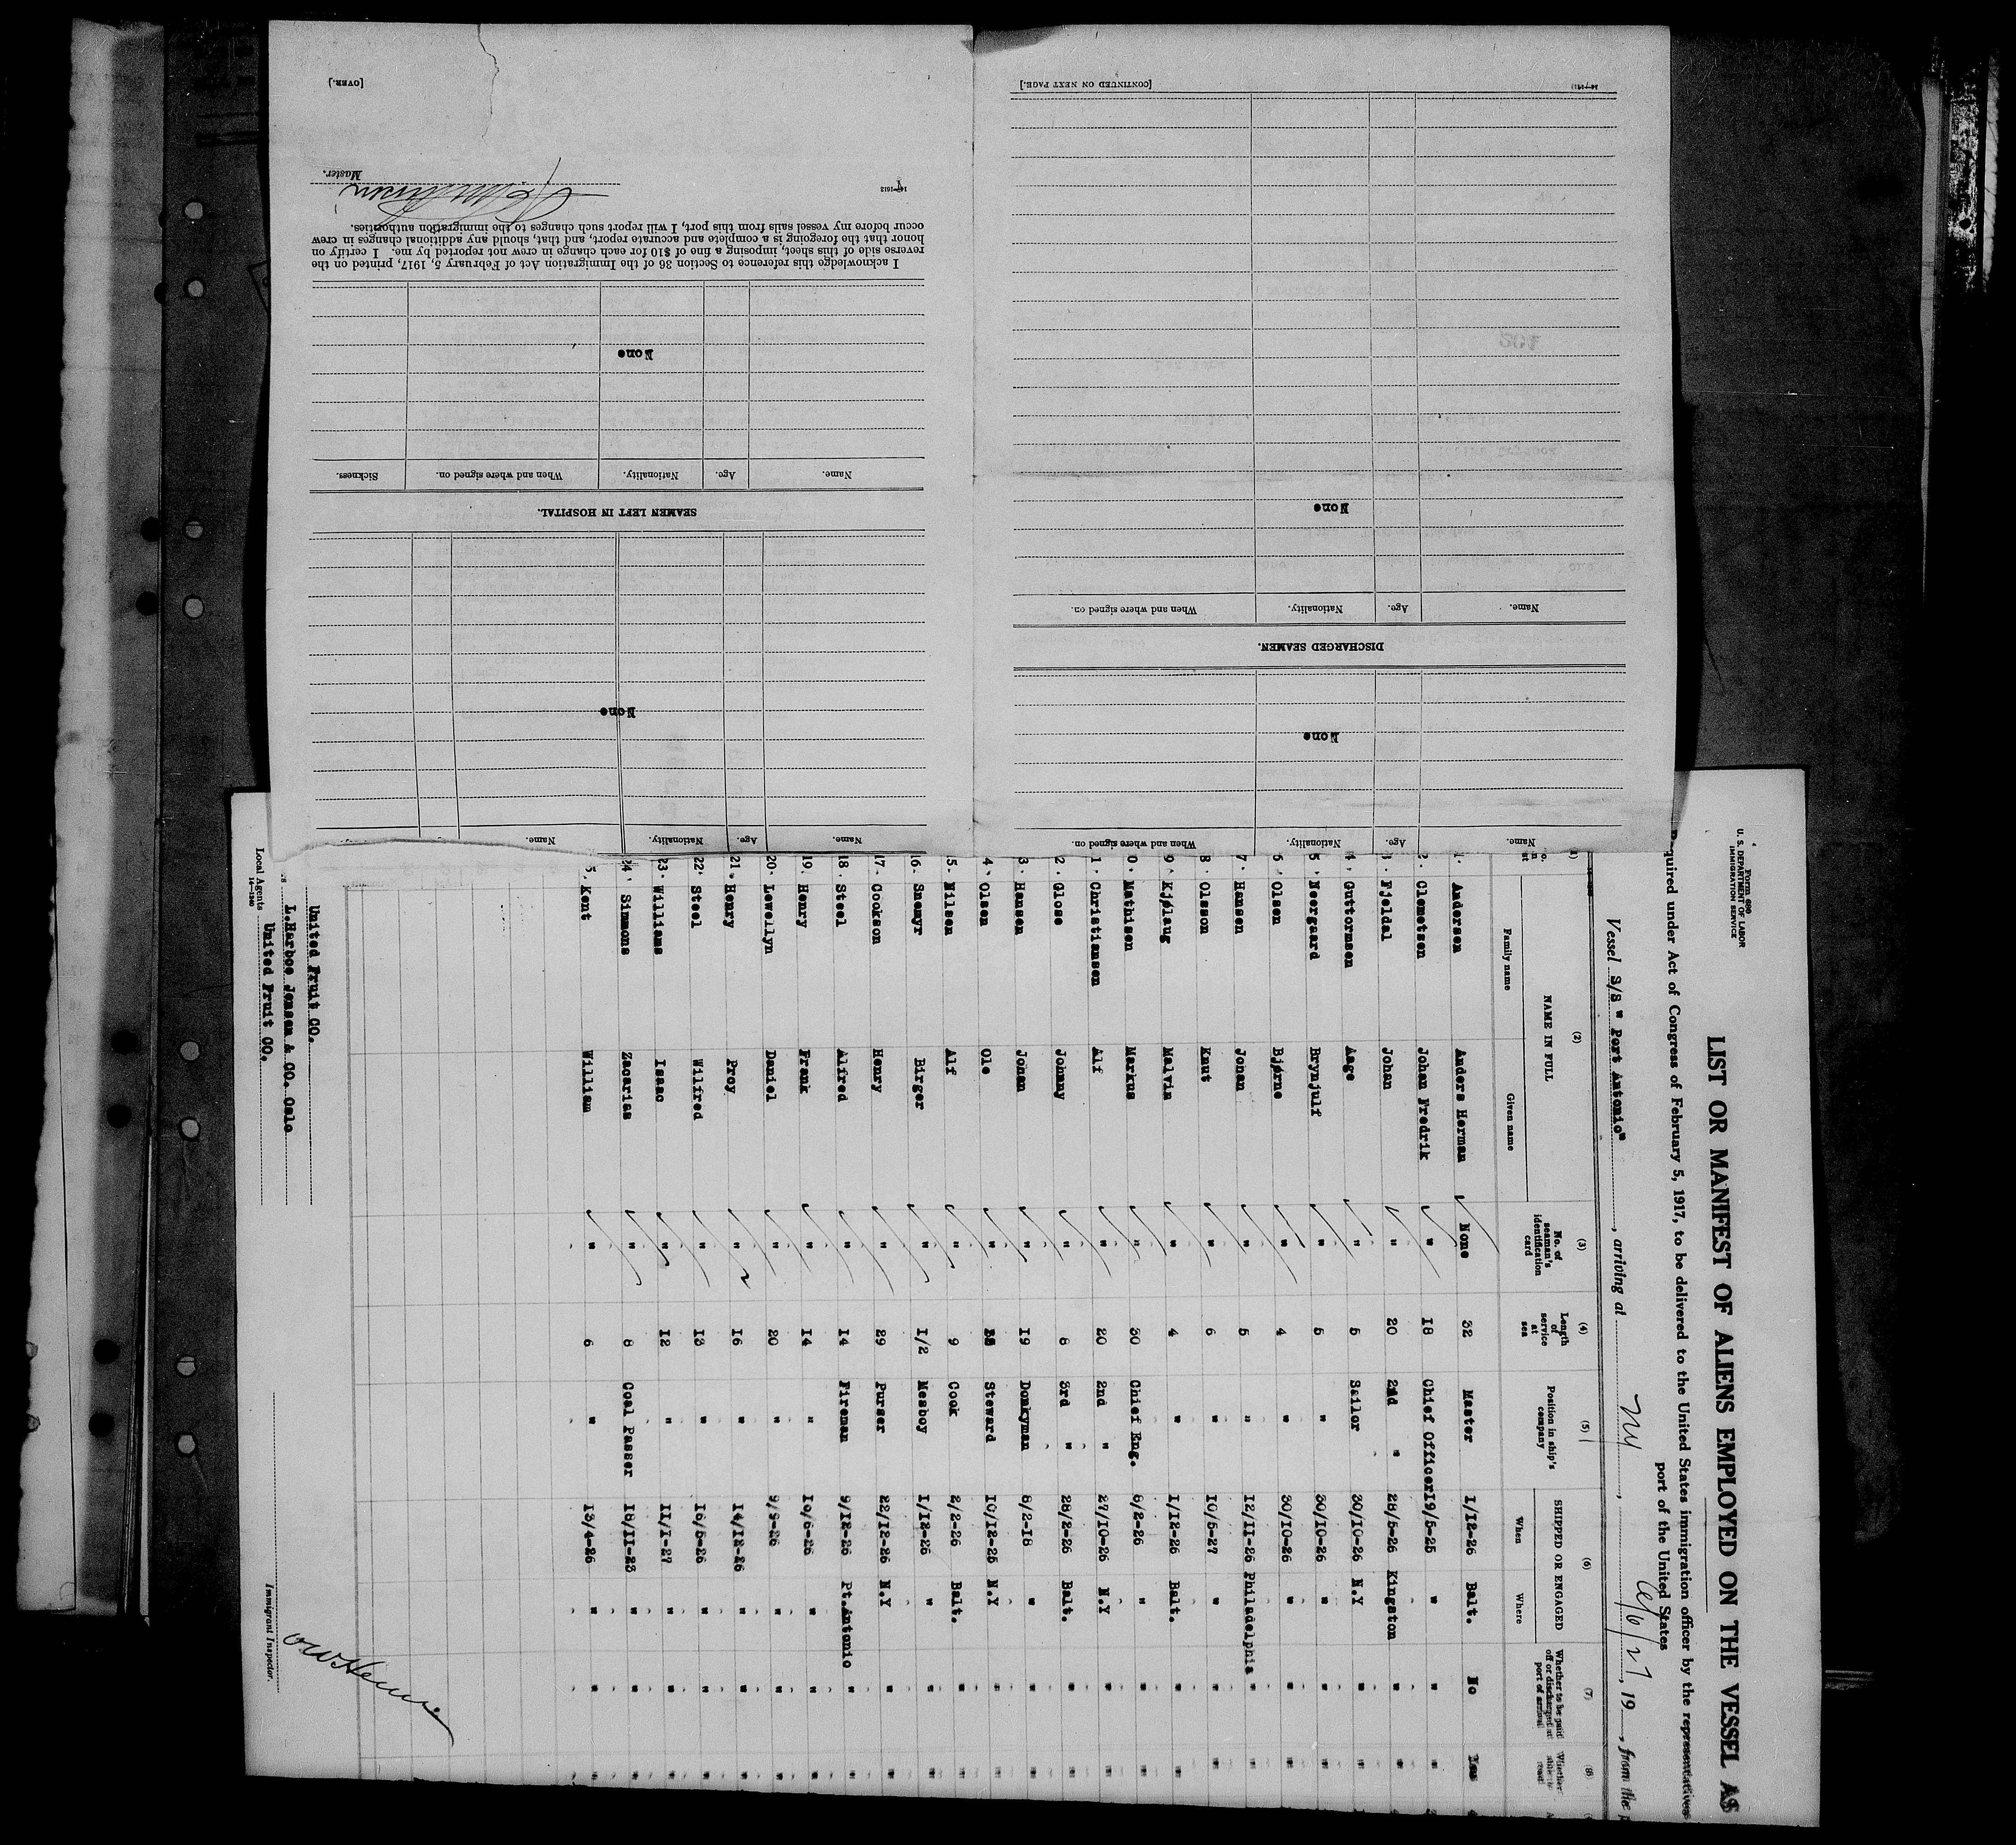 Form 680
U. S. DEPARTMENT OF LABOR
IMMIGRATION SERVICE
LIST OR MANIFEST OF ALIENS EMPLOYED ON THE VESSEL AS
Required under Act of Congress of February 5, 1917, to be delivered to the United States immigration officer by the representatives
port of the United States
Vessel S/S " Port Antonio" , arriving at NY , 19 , from the
(2) (3) (4) (5) (6) (7) (8)
NAME IN FULL No. of seaman's identification card Length of service at sea Position in ship's company SHIPPED OR ENGAGED Whether to be paid off or discharged at port of arrival Whether
Family name Given name When Where
1. Andersen Anders Herman None 32 Master 1/12-26 Balt. No Yes
2. Clemetsen Johan Fredrik " 18 Chief Officer 19/5-25 " " "
3 Fjeldal Johan " 20 2nd " 28/5-26 Kingston " "
4. Guttormsen Aage " 5 Sailor 30/10-26 N.Y " "
5. Neergaard Brynjulf " 5 " 30/10-26 " " "
6. Olsen Bjørne " 4 " 30/10-26 " " "
7. Hansen Johan " 5 " 12/11-26 Philadelphia " "
8. Olsson Knut " 6 " 10/5-27 " " "
9. Kjølaug Malvin " 4 " 1/12-26 Balt. " "
0. Mathisen Markus " 30 Chief Eng. 6/2-26 " " "
1. Christiansen Alf " 20 2nd " 27/10-26 N.Y " "
2. Glose Johnny " 8 3rd " 28/2-26 Balt. " "
3. Hansen Johan " 19 Donkyman 8/2-18 " " "
4. Olsen Ole " Steward 10/12-25 N.Y " "
5. Nilsen Alf " 9 Cook 2/2-26 Balt. " "
16. Snemyr Birger " 1/2 Mesboy 1/12-26 " " "
17. Cookson Henry " 29 Purser 22/12-26 N.Y " "
18. Steel Alfred " 14 Fireman 9/12-26 Pt.Antonio " "
19. Henry Frank " 14 " 10/6-26 " " "
20. Lewellyn Daniel " 20 " 9/9-26 " " "
21. Henry Proy " 16 " 14/12-26 " " "
22. Steel Wilfred " 13 " 16/5-26 " " "
23. Williams Isaac " 12 " 11/1-27 " " "
24. Simmons Zacarias " 8 Coal Passer 18/11-23 " " "
5. Kent William " 6 " 13/4-26 " " "
United Fruit CO.
L.Harboe Jensen & CO. Oslo
Local Agents United Fruit CO.
14—1240
Immigrant Inspector.
Name. Age. Nationality. When and where signed on.
None
DISCHARGED SEAMEN.
Name. Age. Nationality. When and where signed on.
None
[CONTINUED ON NEXT PAGE.]
Name. Age. Nationality. Name.
None
SEAMEN LEFT IN HOSPITAL.
Name. Age. Nationality. When and where signed on. Sickness.
None
I acknowledge this reference to Section 36 of the Immigration Act of February 5, 1917, printed on the
reverse side of this sheet, imposing a fine of $10 for each change in crew not reported by me. I certify on
honor that the foregoing is a complete and accurate report, and that, should any additional changes in crew
occur before my vessel sails from this port, I will report such changes to the immigration authorities.
Master.
[OVER.]